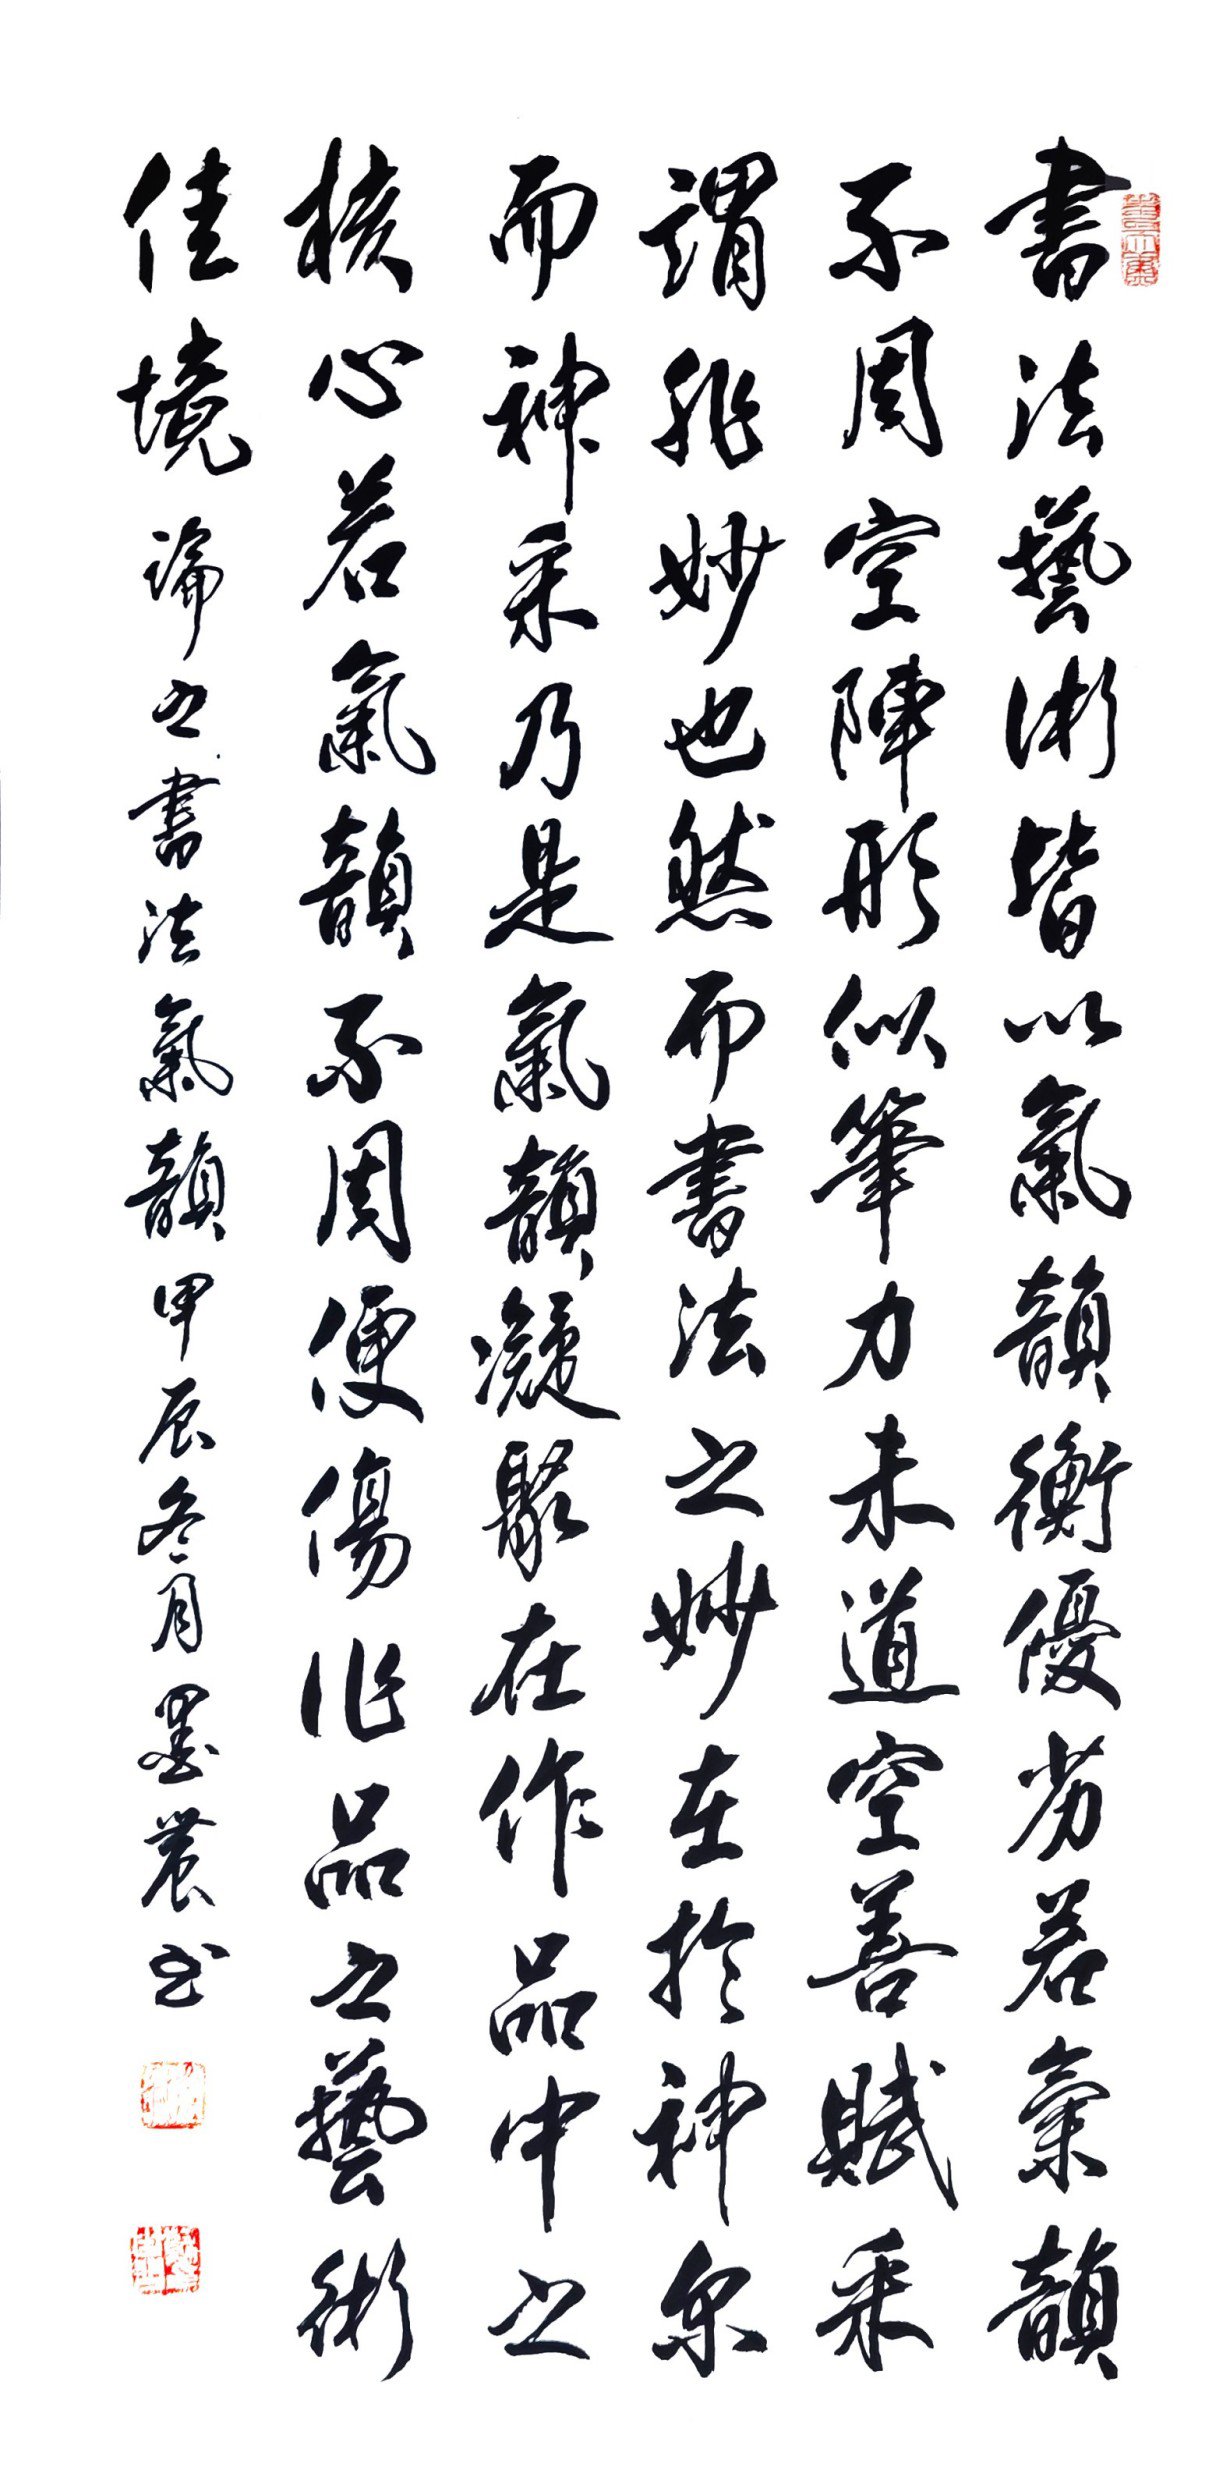 書法藝術皆以氣韻衡優劣若氣韻
不周空陣形似筆力未道空善賦采
謂非妙也然而書法之妙妙在於神采
而神采乃是氣韻凝聚在作品中之
核心若氣韻不周便傷作品之藝術
佳境 論之書法氣韻甲辰冬月墨農书